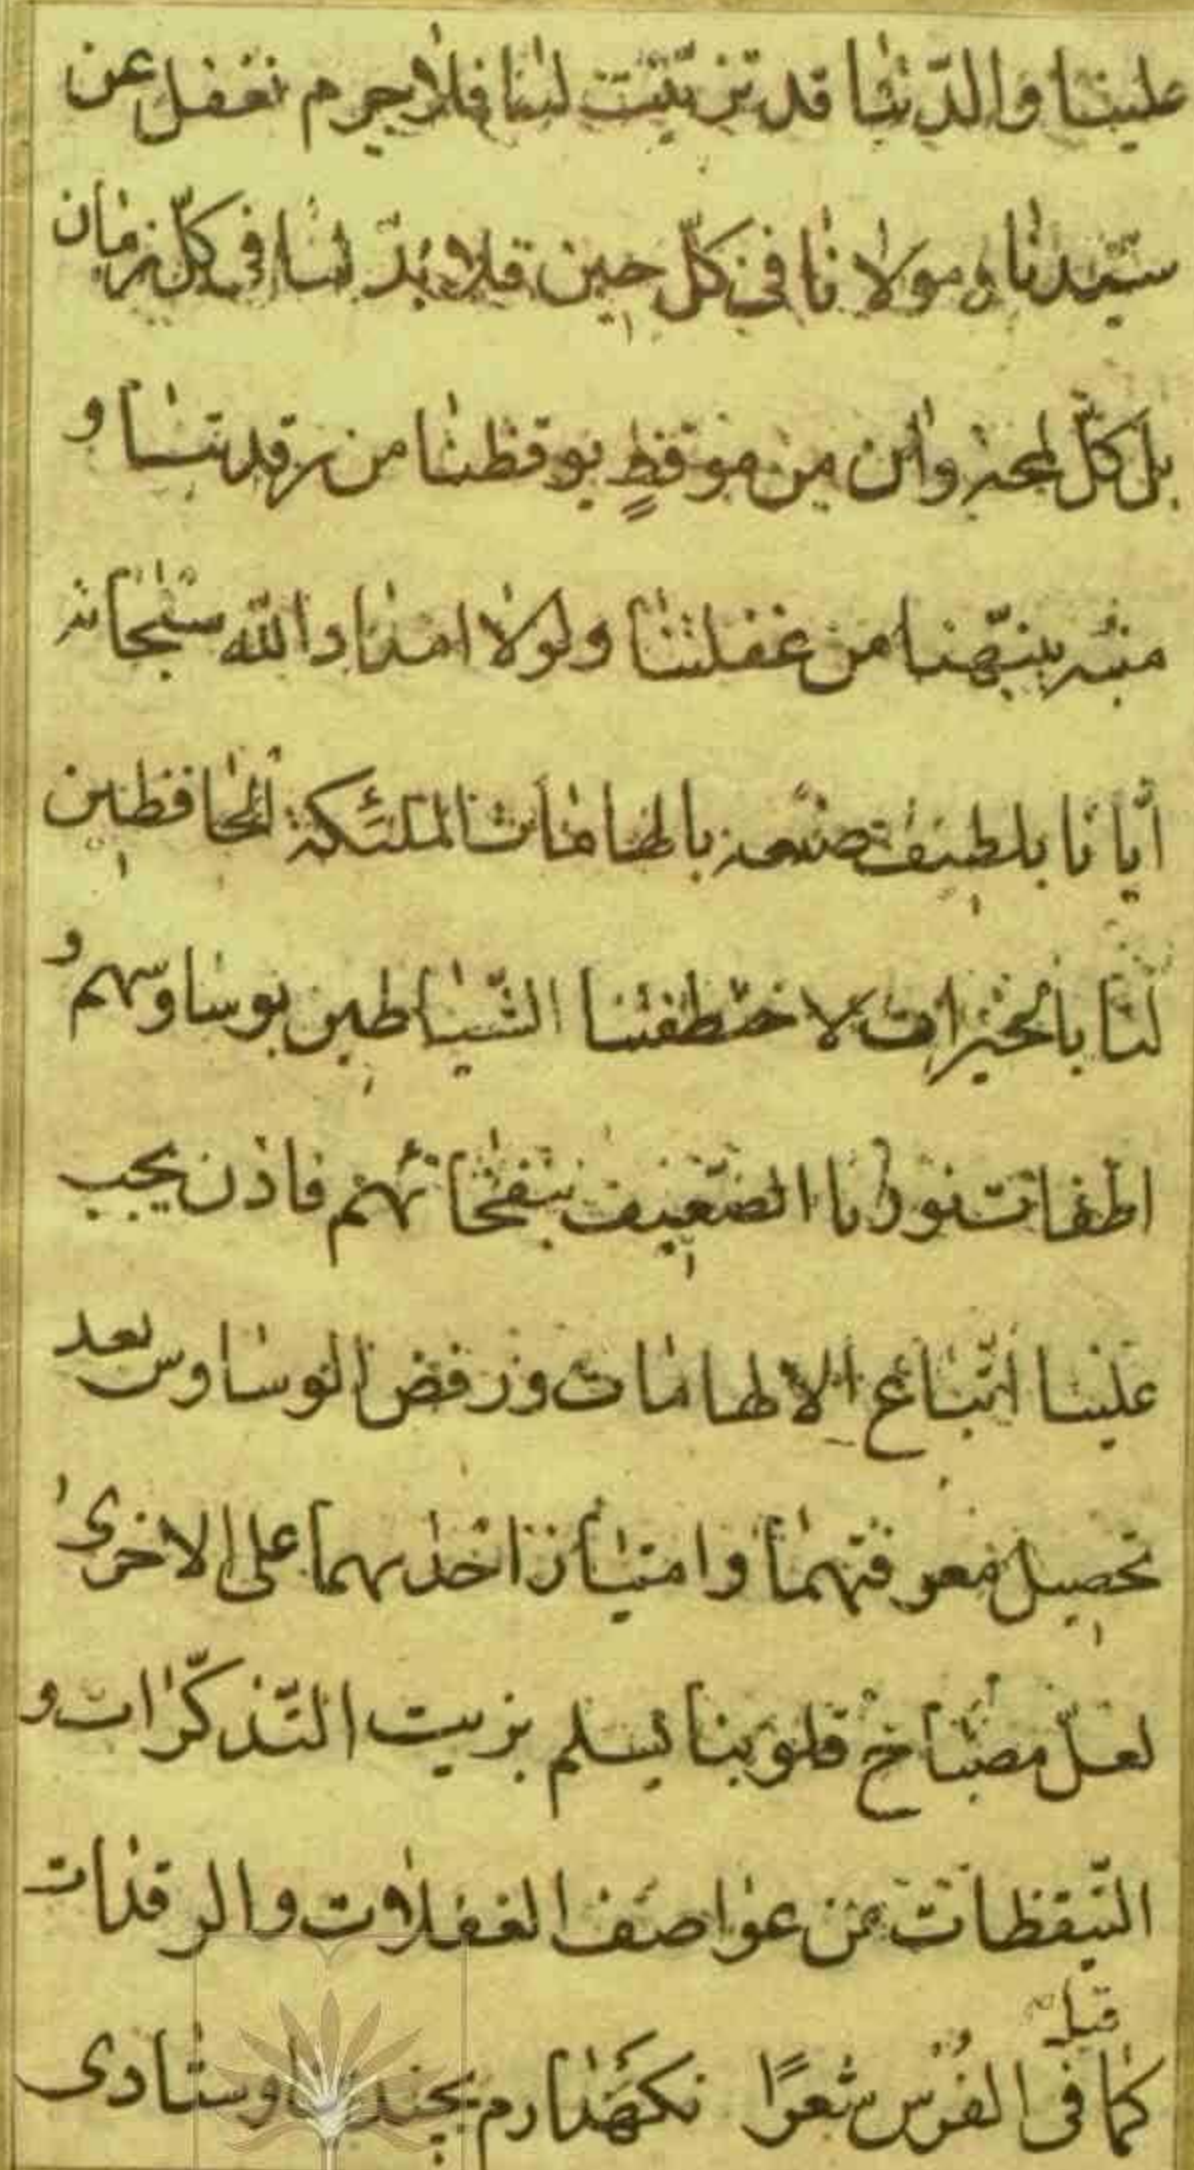 علينا والدّنيا قد تزيّنت لنا فلاجرم نغفل عن
سيّدنا و مولانا فى كلّ حين فلا بدّ لنا فى كلّ زمان
بل كلّ لمحة وان من موقظٍ يوقظنا من رقدتنا و
منبّه ينبّهنا من غفلتنا ولولا امداد الله سبحانه
ايّانا بلطيف صنعه بالهامات الملئكة الحافظين
لنا بالخيرات لاختطفتنا الشّياطين بوساوسهم و
اطفات نورنا الضّعيف بنفخاتهم فاذن يجب
علينا اتّباع الالهامات ورفض الوساوس بعد
تحصيل معرفتهما وامتياز احدٰيهما على الاخرىٰ
لعلّ مصباح قلوبنا يسلم بزيت التّذكّرات و
التّيقظات عن عواصف الغفلات والرقدات
كما قيل فى الفُرس شعرًا نكهدارم بچندين اوستادى